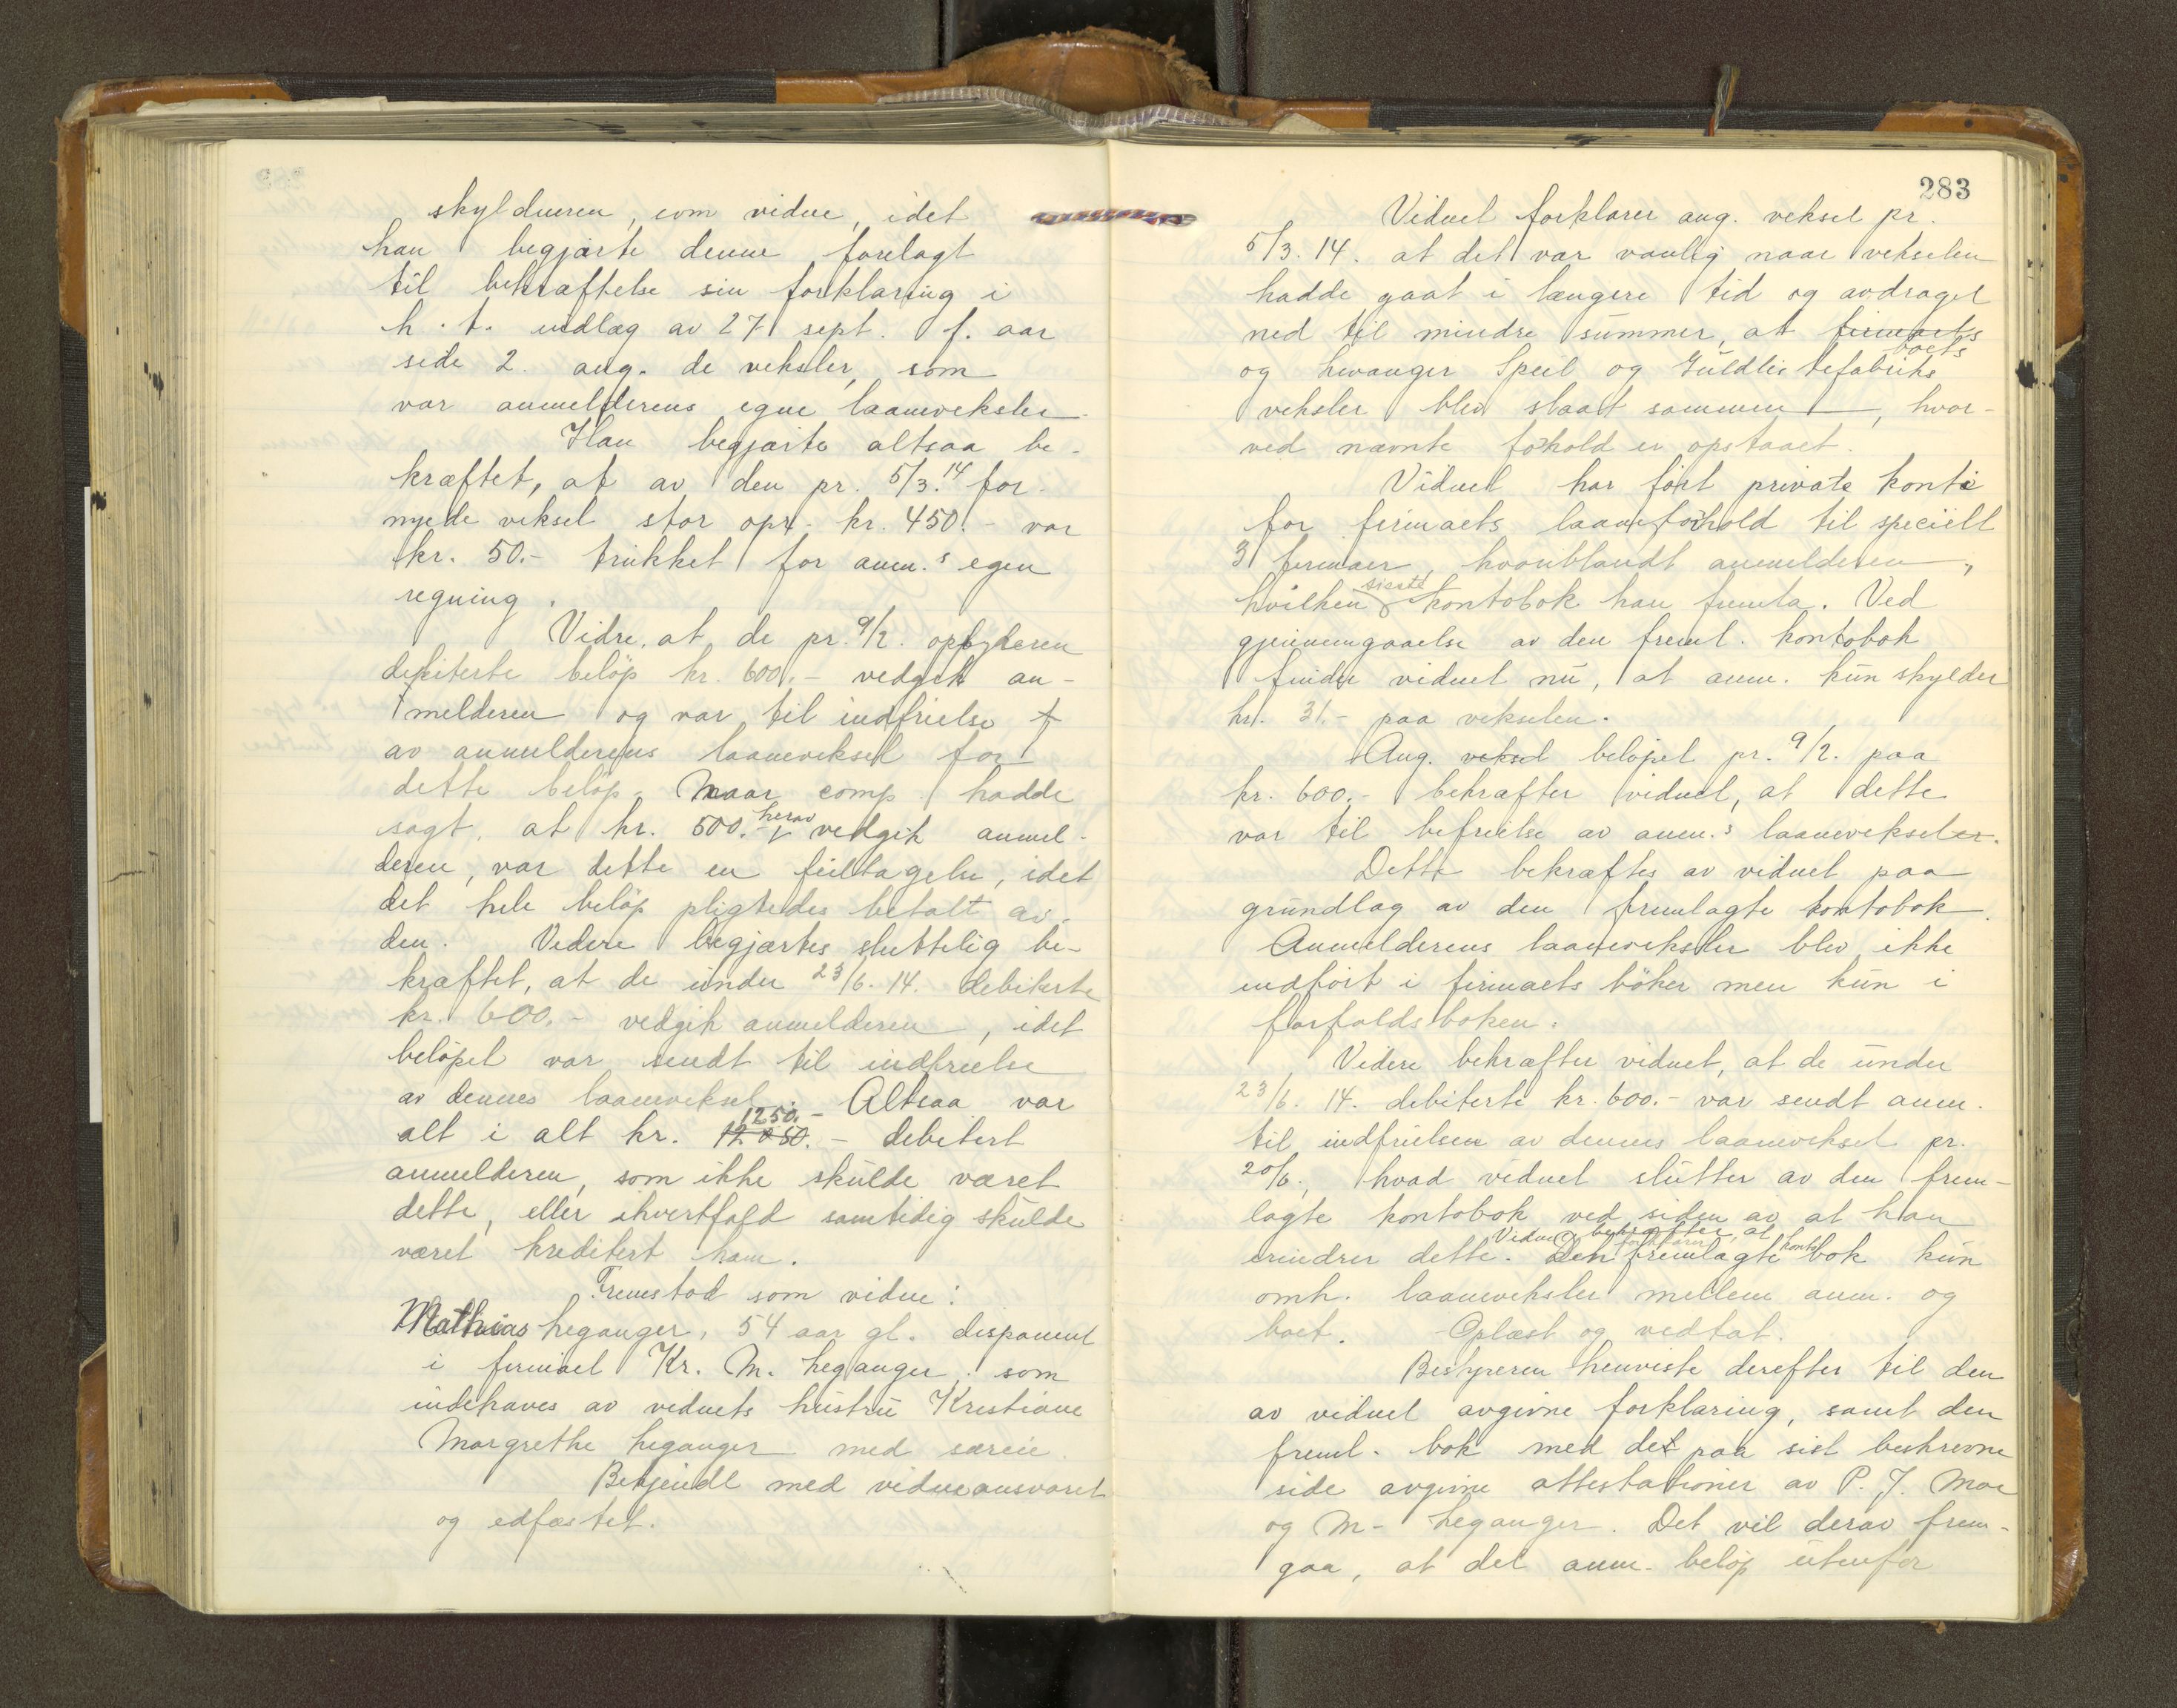 skyldneren, som vidne, idet
han begjærte denne forelagt
til bekræftelse sin forklaring i
h. t. indlæg av 27 sept. f. aar
side 2. ang. de veksler, som
var anmelderens egne laaneveksler.
Han begjærte altsaa be-
kræftet, at av den pr. 5/3. 14 for-
nyede veksel stor opr. kr. 450.- var
kr. 50.- trukket for anm.s egen
regning.
Vidre, at de pr. 9/2.
debiterte beløp kr. 600.- vedgik an-
melderen og var til indfrielse
av anmelderens laaneveksel for
dette beløp. Naar comp. hadde
sagt, at kr. 500.- herav vedgik anmel-
deren, var dette en feiltagelse, idet
det hele beløp pligtedes betalt av
den. Videre begjærtes sluttelig be-
kræftet, at de under 23/6. 14. debiterte
kr. 600.- vedgik anmelderen, idet
beløpet var sendt til indfrielse
av dennes laaneveksel. Altsaa var
alt i alt kr. 1250.- debitert
anmelderen, som ikke skulde været
dette, eller ihvertfald samtidig skulde
været kreditert ham.
Fremstod som vidne:
Mathias Leganger, 54 aar gl. disponent
i firmaet Kr. M. Leganger, som
indehaves av vidnets hustru Kristiane
Margrethe Leganger med særeie.
Bekjendt med vidneansvaret
og edfæstet.
283
Vidnet forklarer ang. veksel pr.
5/3. 14. at det var vanlig naar vekselen
hadde gaat i længere tid og avdraget
ned til mindre summer, at firmaets boets
og Levanger Speil og Guldlistefabriks
veksler blev slaat sammen, hvor-
ved nævnte forhold er opstaaet.
Vidnet har ført private konti
for firmaets laaneforhold til specielt
3 firmaer, hvoriblandt anmelderen,
hvilken sidste kontobok han fremla. Ved
gjennemgaaelse av den freml. kontobok
finder vidnet nu, at anm. kun skylder
kr. 31.- paa vekselen.
Ang. veksel beløpet pr. 9/2. paa
kr. 600.- bekræfter vidnet, at dette
var til befrielse av anm.s laaneveksler.
Dette bekræftes av vidnet paa
grundlag av den fremlagte kontobok.
Anmelderens laaneveksler blev ikke
indført i firmaets bøker men kun i
forfaldsboken.
Videre bekræfter vidnet, at de under
23/6. 14. debiterte kr. 600.- var sendt anm.
til indfrielsen av dennes laaneveksel pr.
20/6., hvad vidnet slutter av den frem-
lagte kontobok ved siden av at han
erindrer dette. Vidnet bekræfter, at Den fremlagte kontobok kun
omh. laaneveksler mellem anm. og
boet. Oplæst og vedtat.
Bestyreren henviste derefter til den
av vidnet avgivne forklaring, samt den
freml. bok med det paa sist beskrevne
side avgivne attestationer av P. J. Moe
og M. Leganger. Det vil derav frem-
gaa, at det anm. beløp utenfor